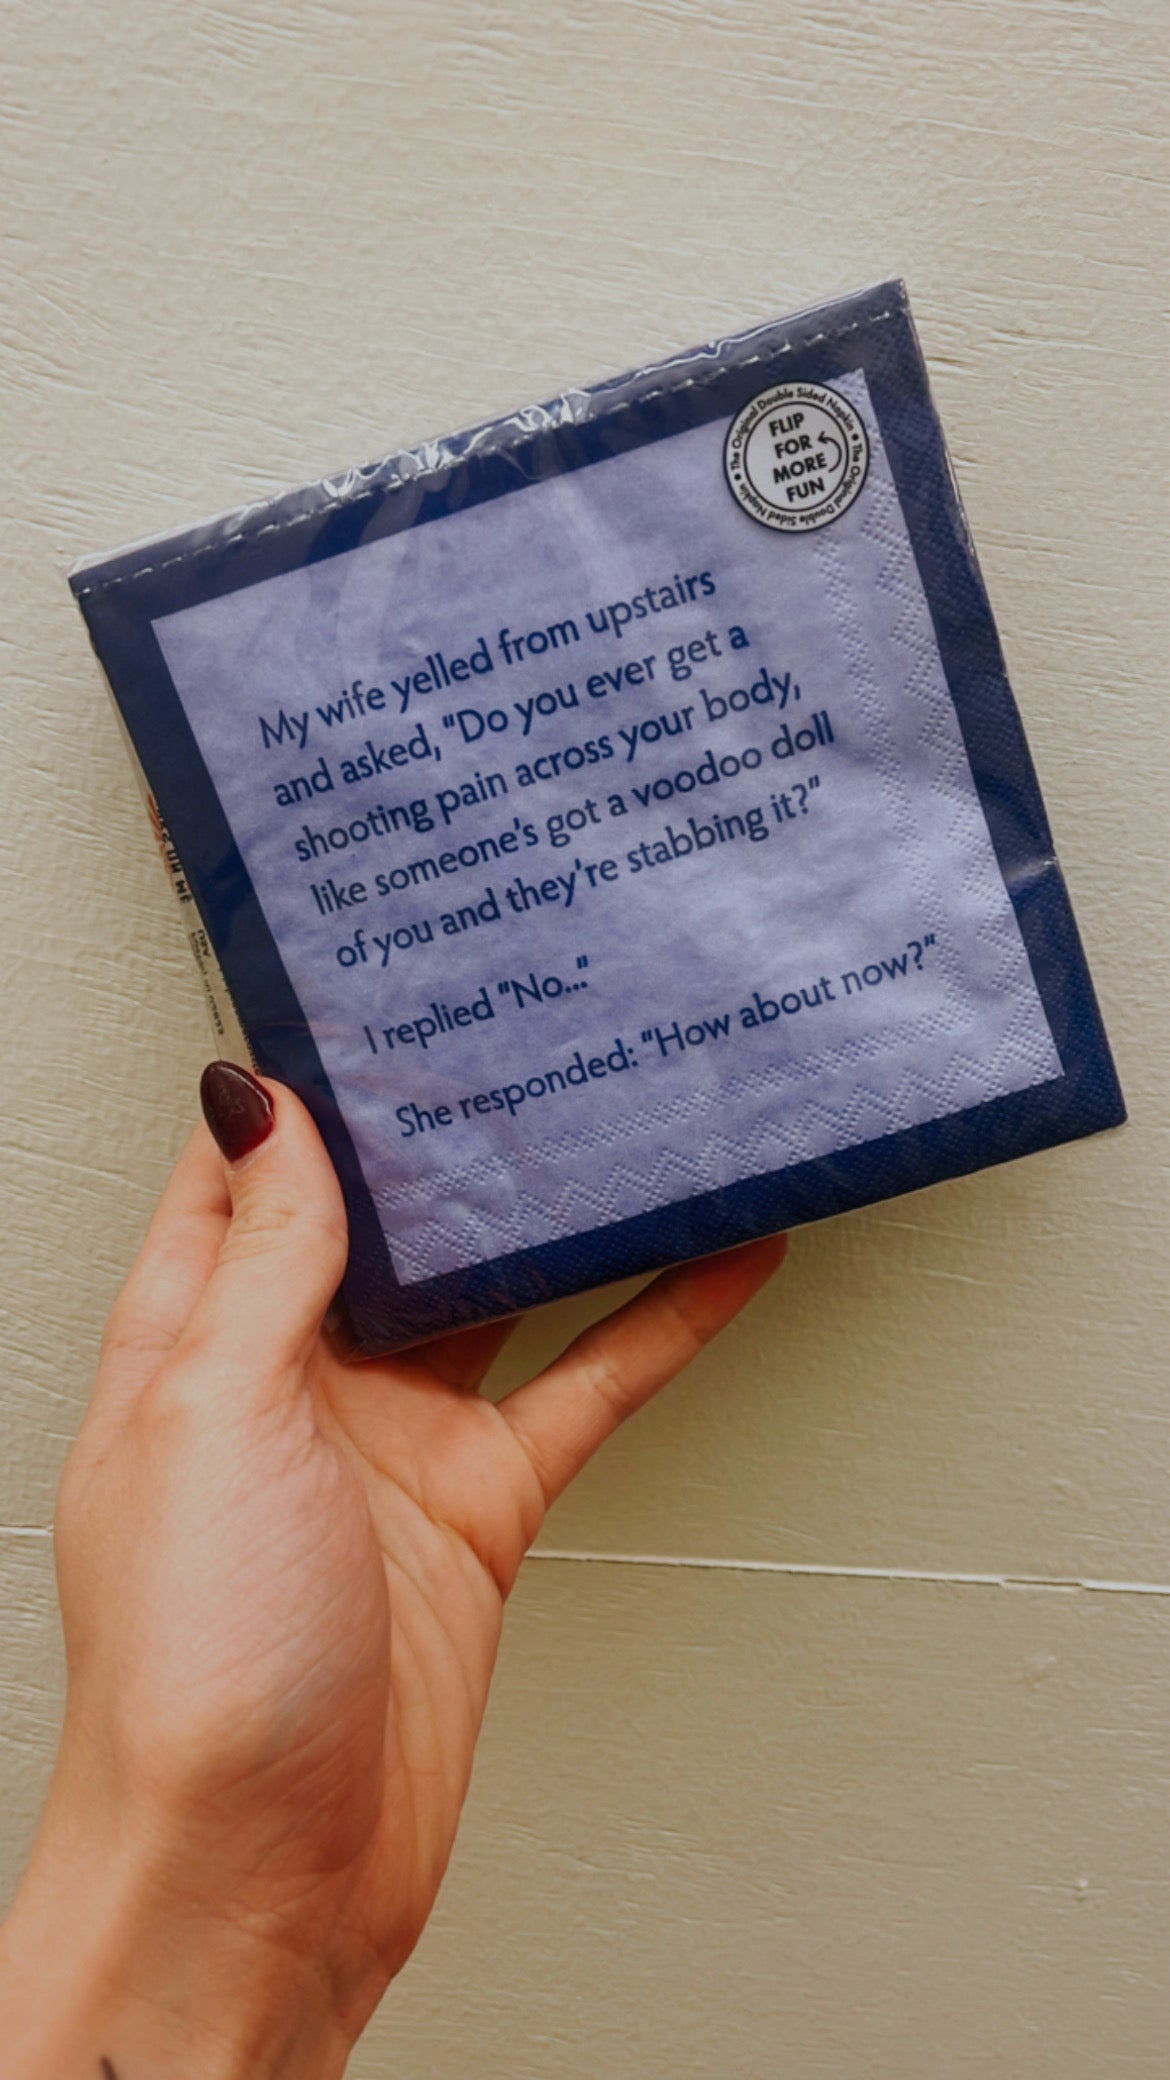 The Original Double Sided Napkin • The Original Double Sided Napkin •
FLIP
FOR
MORE
FUN
My wife yelled from upstairs
and asked, "Do you ever get a
shooting pain across your body,
like someone's got a voodoo doll
of you and they're stabbing it?"
I replied "No..."
She responded: "How about now?"